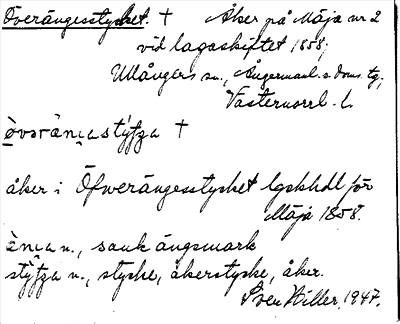 Överängesstycket. † Åker på Mäja nr 2
vid lagaskiftet 1858;
Ullångers sn., Ångermanl. s. doms. tg,
Västernorrl. l.
åker i Öfverängesstycket lgskhdl för
Mäja 1858.
n., sank ängsmark
n., stycke, åkerstycke, åker.
Sven Hiller. 1947.